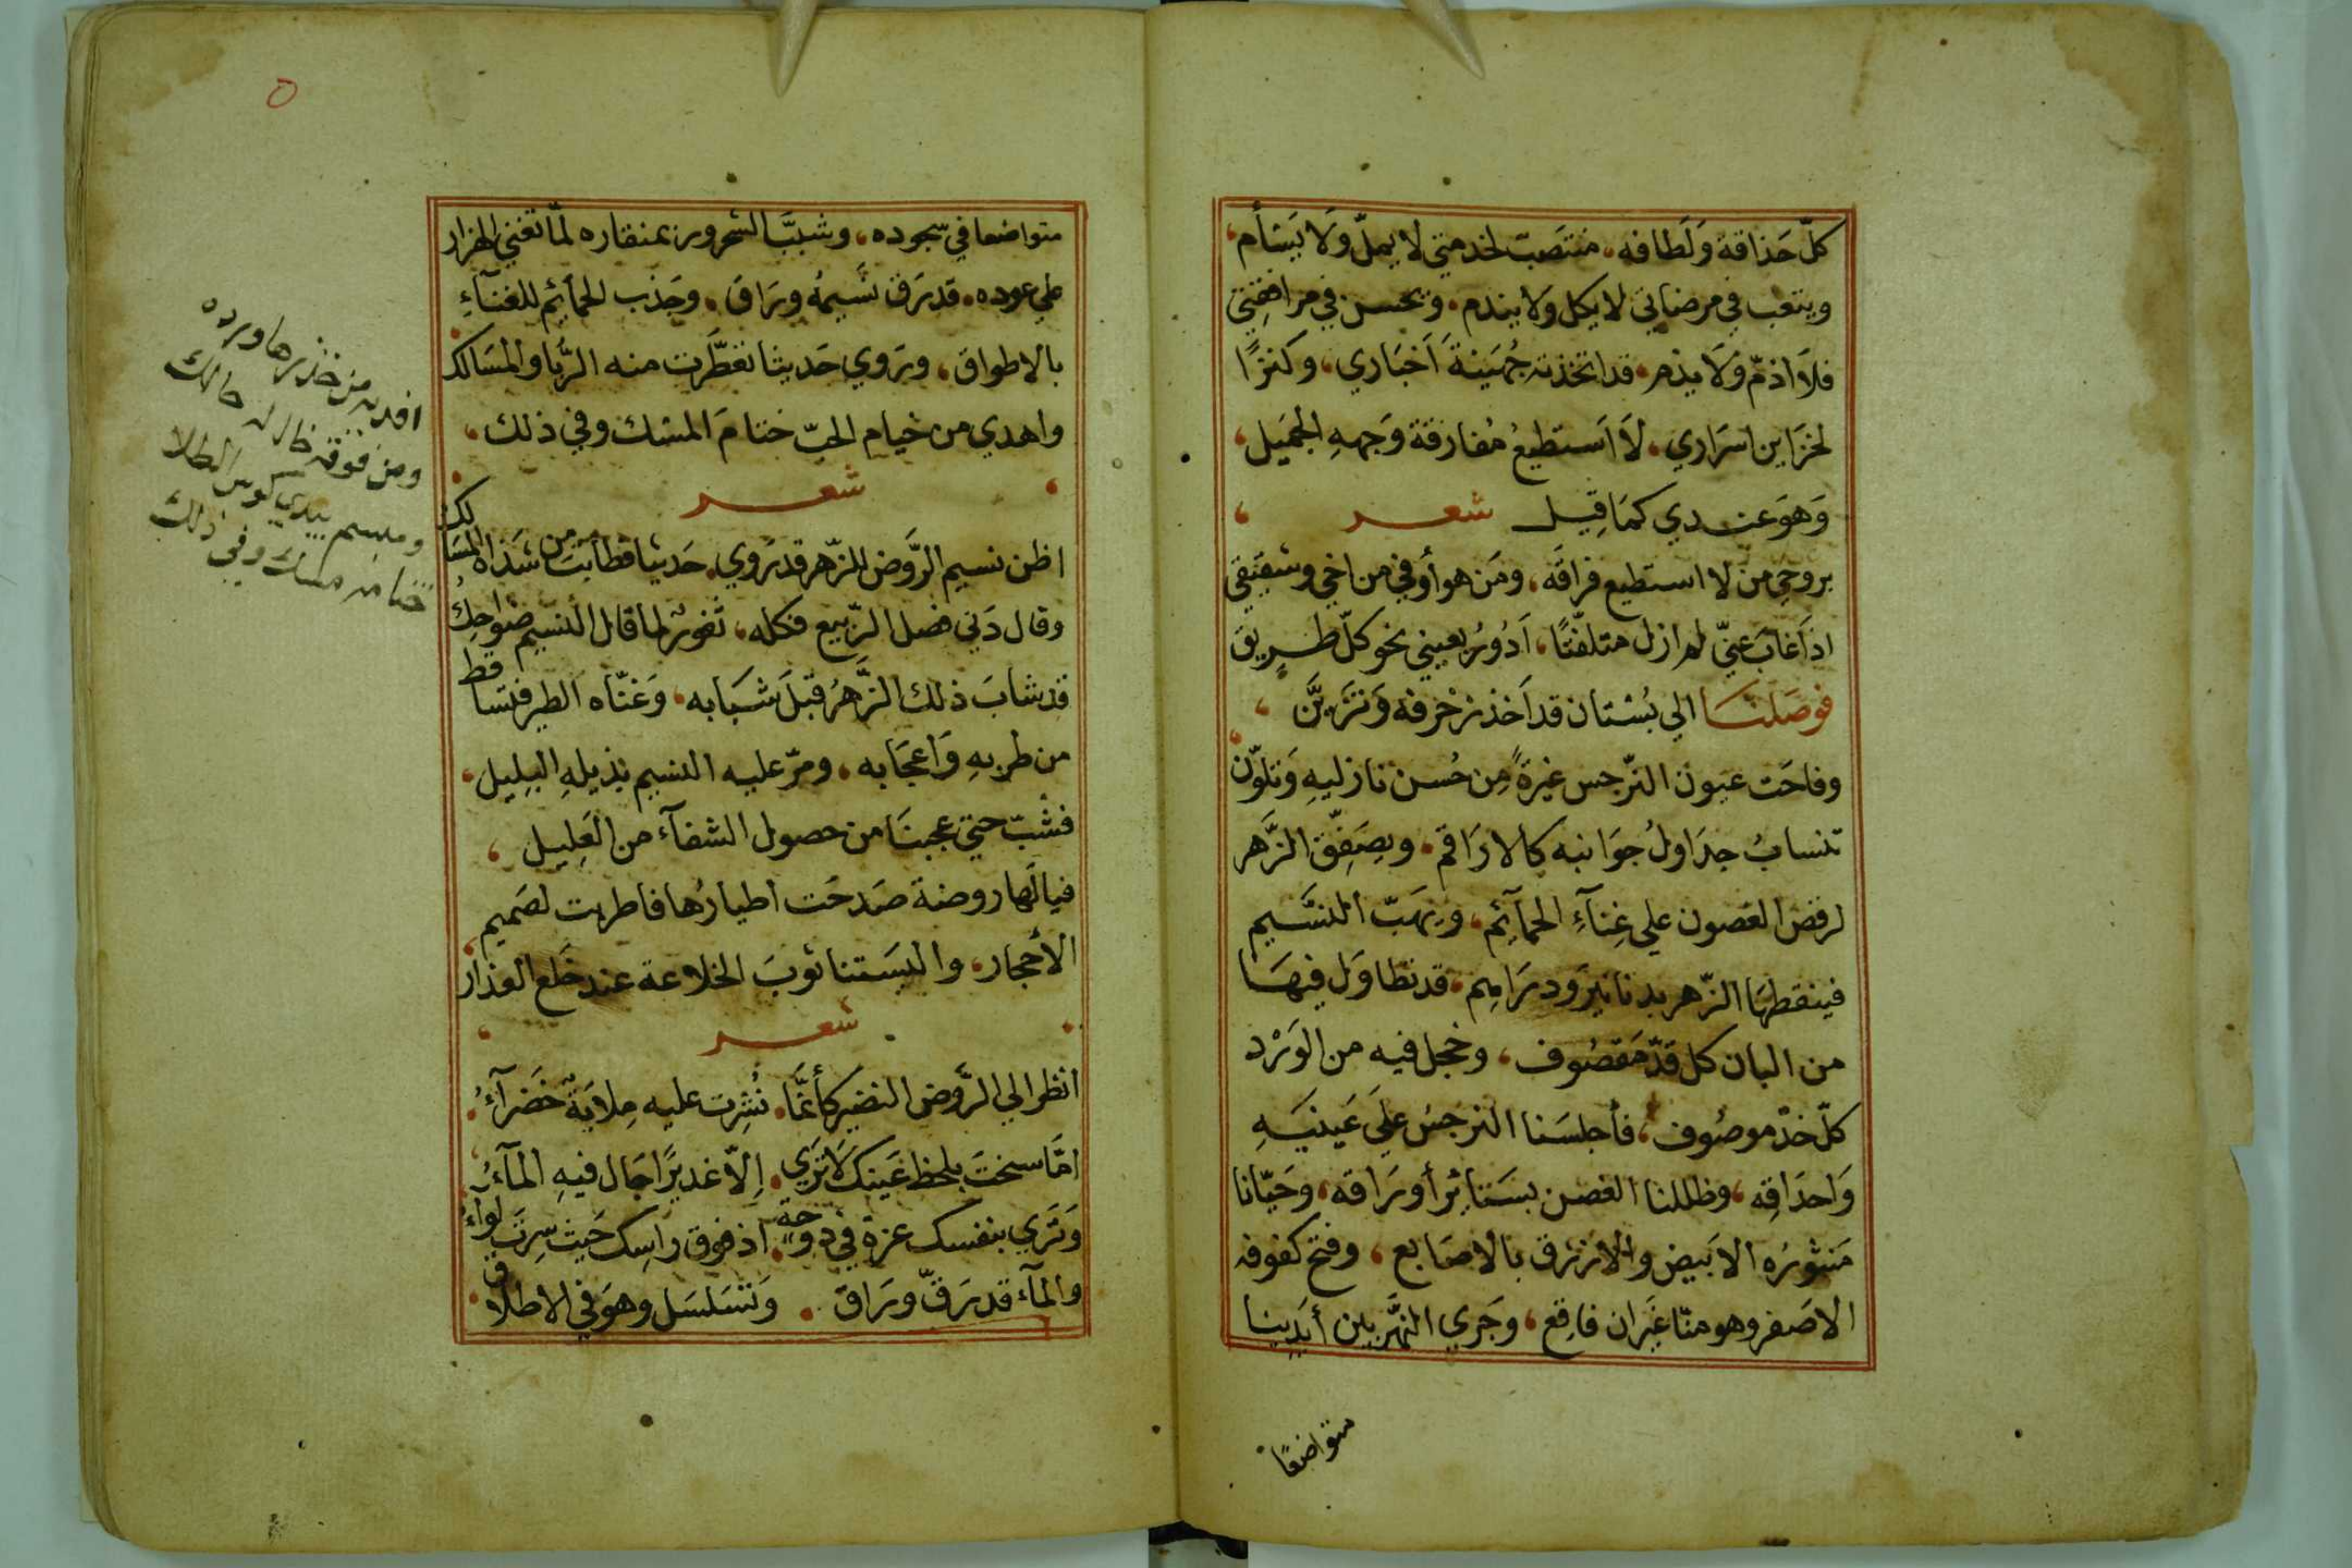 كلّ حَذاقة وَلَطافه، منتصَبّ لخدمتي لا يملّ وَلَا يَسْأم،
ويتعب في مرضاتي لا يكل وَلا يندم، ويحسن في مرافقتي
فلَا اذمّ وَلَا يذم، قد اتخذته جُهَينةَ اَخبَاري، وكنزًا
لخزَاين اسرَاري، لَا اَستطيعُ مُفارقة وَجههِ الجمَيل،
وَهوَ عندي كمَا قِيل شعر
بروحي من لا استطيع فراقَه، ومَن هو أوفي من اخي وشقيقي
اذا غابَ عنيّ لم ازل متلفّتًا، اَدُورُ بعيني نحو كلّ طريق
فوصَلنَا الي بُسْتان قد اَخذ زخرفه وَتزيَّن،
وفاحَت عيَون النّرجس غيرةً مِن حُسن نازليهِ وَتلوّن
تنسابُ جدَاولُ جوَانبه كالارَاقم، ويصَفّق الزَّهر
لرقص الغصون علي غِنآءِ الحمآئِم، ويهَبّ النسَّيم
فينقطهَا الزّهر بدنانيرَ ودرَاهِم، قد تطاوَل فيهَا
من البان كل قدّ مَقصُوف، وخجل فيه من الوَرْد
كلّ خدّ موصُوف، فأجلسَنا النرجسُ علَي عَينَيهِ
وَاحدَاقِه، وظللنا الغصن بسَتايُر أورَاقه، وحَيّانا
مَنثورُه الابيَض والازرق بالاصَابع، وفتح كفوفه
الاصَفر وهو منّا غيَران فاقِع، وجَري النهَّر بين أيَدينا
متواضعًا
٥
متواضعا في سّجوده، وشببَّ الشحرور بمنقاره لمّا تغني الهزار
علي عوده، قد رَقّ نسَيمُه ورَاقَ، وجَذب الحمآئِم للغنآءِ
بالاطواق، ورَوي حَديثا تعطَّرت منه الرُّبا والمسَالك
واهدي من خيام الحبّ ختامَ المسْك وفي ذلك،
شعر
اظن نسيم الرَّوض للزّهر قد رَوي، حَديثا فطابَت من شذاه المسَالك
وقال دَني فصل الرّبيع فكله، ثغورٌ لما قال النسيم ضوَاحِكُ
قد شابَ ذلك الزَّهرُ قبَلَ شبَابه، وَغنّاه الطير فتسَاقط
من طربهِ وَاعجَابه، ومرّ عليه النسيم بذيلهِ البليل،
فشبّ حتي عجبنَا من حصول الشفآء من العَلِيل،
فيالَها روضة صَدحَت اطيارُها فاطربت لصَميم
الأحجار، والبسَتنا ثوبَ الخلاعة عند خَلع العذار
شعر
انظر الي الرَّوض النضير كأنمَّا، نُشِرت عليه مِلايَةٌ خضَرآءُ
امَّا سخَت بلحظ عَينك لَا ترَي، اِلّا غديرًا جَال فيهِ المآءُ
وَترَي بنفسك عزة في دوحة، اذ فوق راسِك حَيث سِرتَ لوآءُ
والمآء قد رَقّ ورَاق، وَتسَلسَل وهوَ في الاطلاق
افديه من خذ زها ورده
ومن فوقه خال له حالك
ومبسم يبدي كوس الطلا
ختامه مسك وفي ذلك